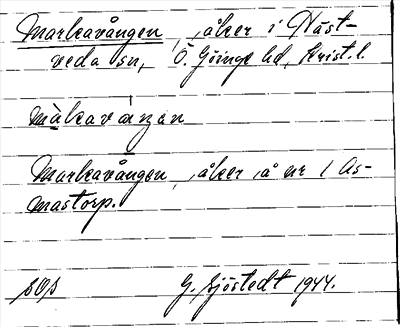 Markavången, åker i Näst-
veda sn, Ö. Göinge hd, Krist. l.
màkaváŋan
Markavången, åker å nr 1 As-
mastorp.
G. Sjöstedt 1944.